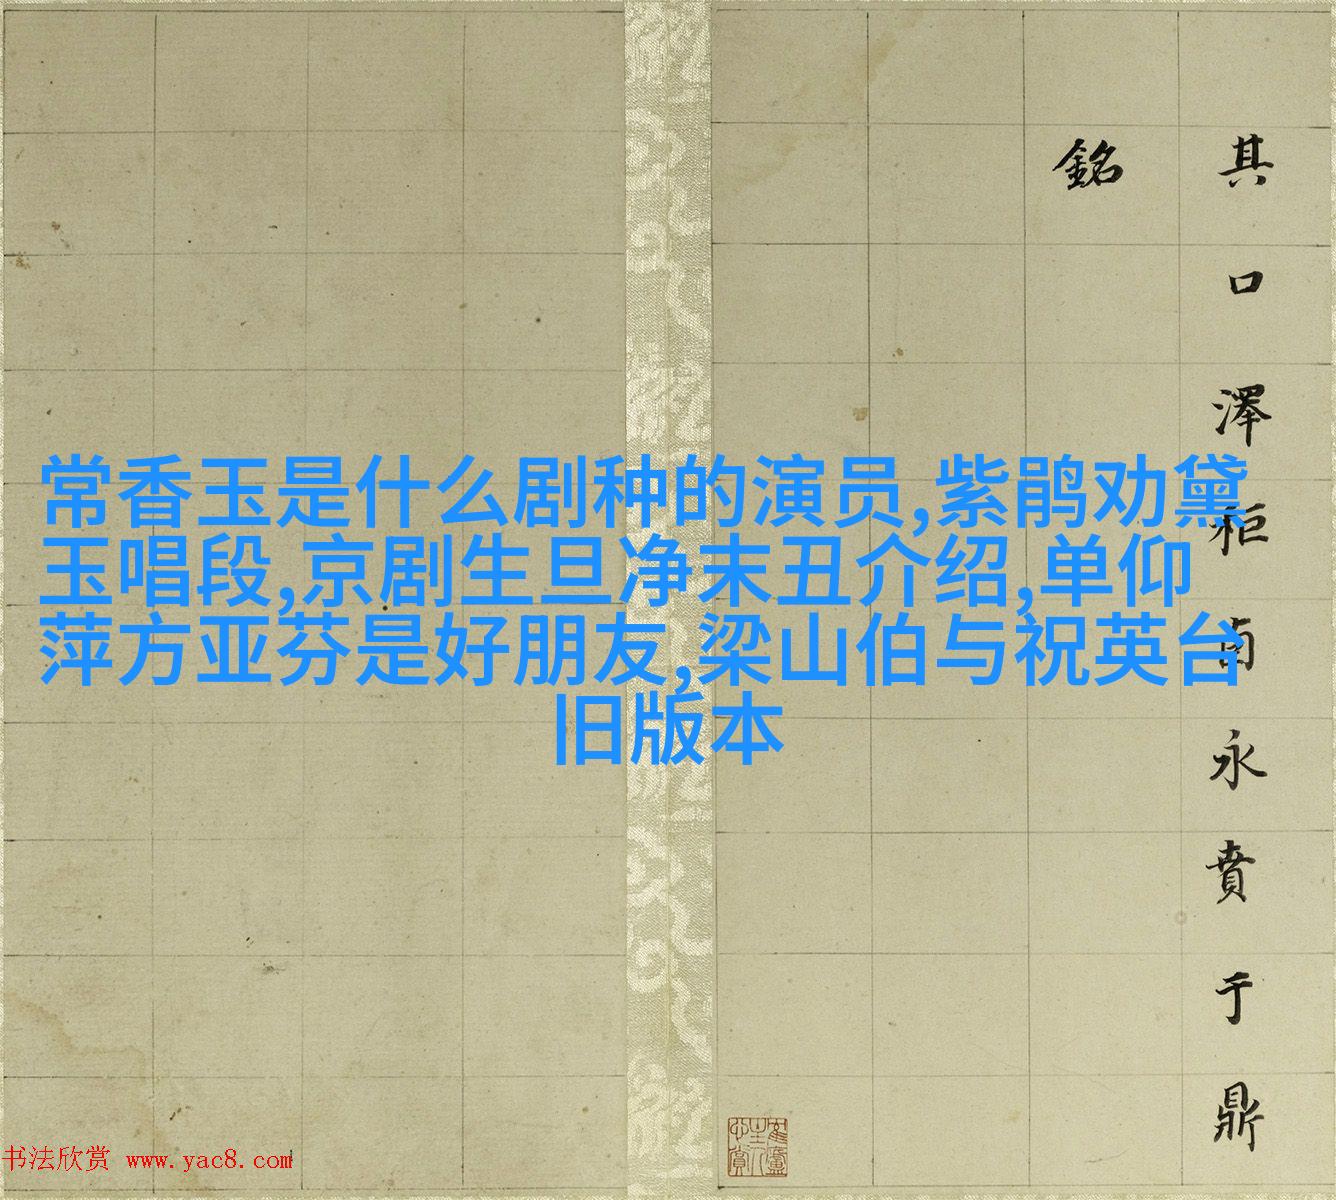 其口澤秬卣永賁于鼎
銘
常香玉是什么剧种的演员,紫鹃劝黛
玉唱段,京剧生旦净末丑介绍,单仰
萍方亚芬是好朋友,梁山伯与祝英台
旧版本
书法欣赏 www.yac8.com